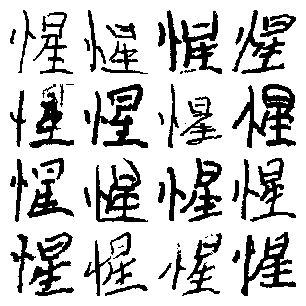 惺惺惺惺
惺惺惺惺
惺惺惺惺
惺惺惺惺